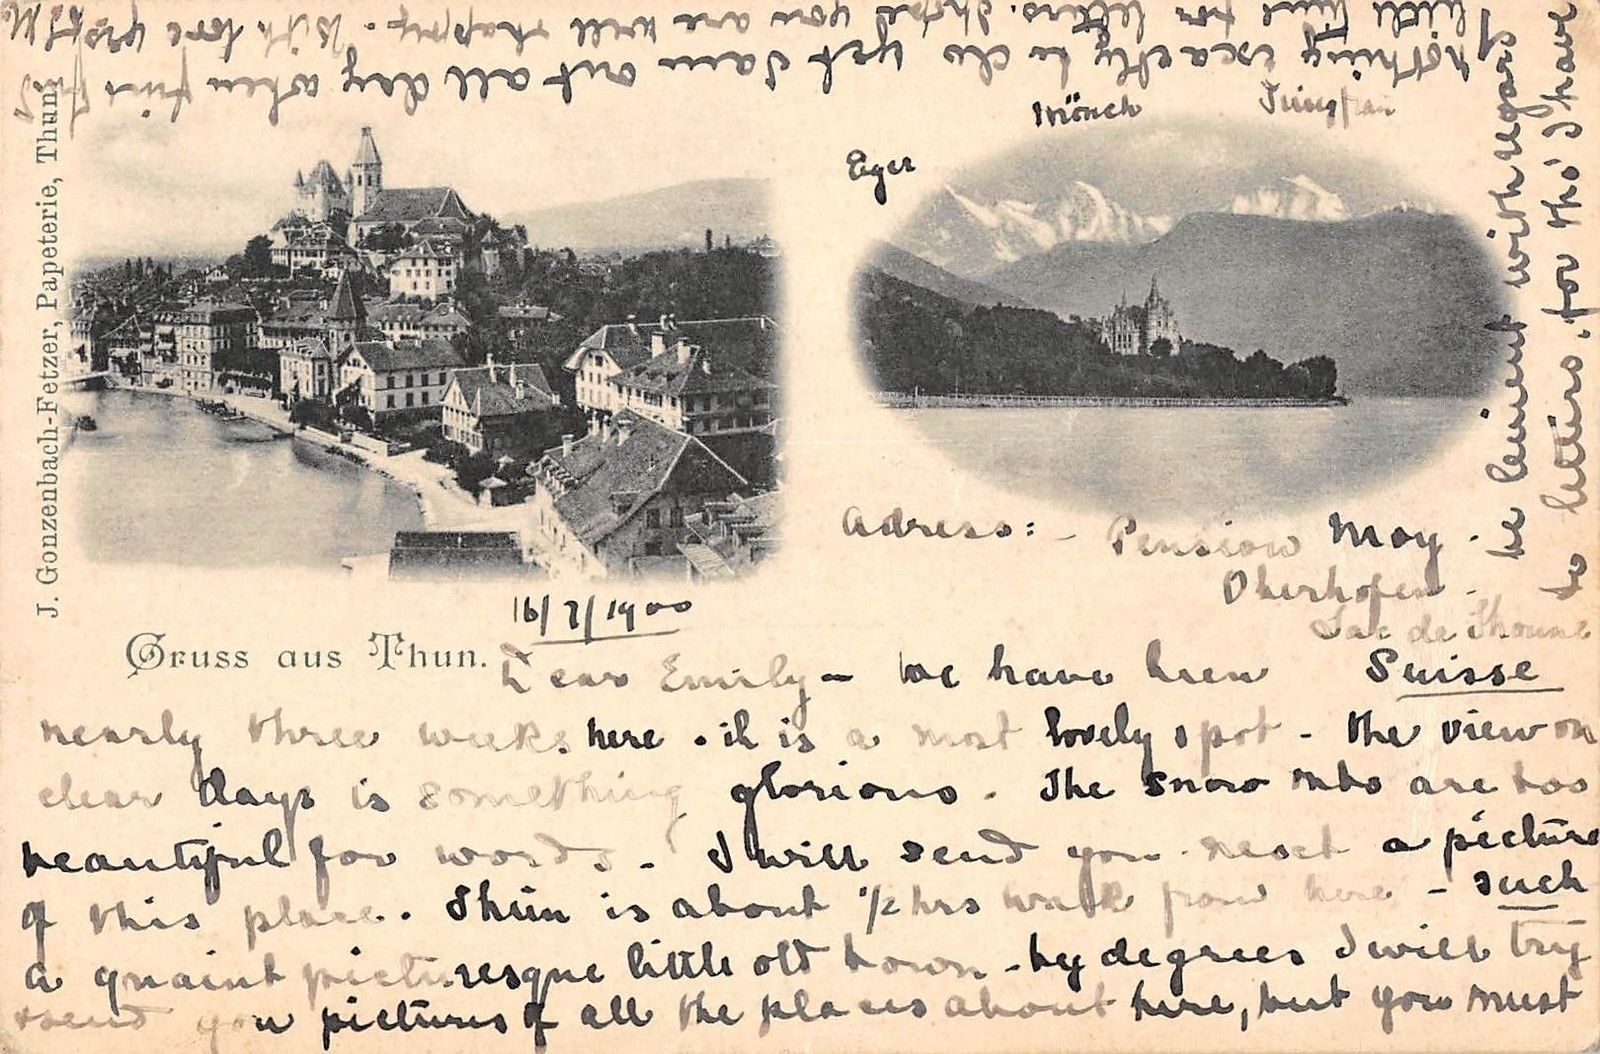 J. Gonzenbach-Fetzer, Papeterie, Thun.
Eger
Mönch
Jungfrau
Gruss aus Thun.
Adress: - Pension Moy.
Oberhofen.
Lac de Thoune
Suisse
16/7/1900
Dear Emily - We have been
nearly three weeks here. it is a most lovely spot - the view on
clear days is something glorious. The snow mts are too
beautiful for words. I will send you next a picture
of this place. Thun is about 1/2 hrs walk from here - such
a quaint picturesque little old town - by degrees I will try
send you pictures of all the places about here, but you must
be lenient with regards
to letters, for tho' I have
nothing exactly to do yet I am out all day when fine
little time for letters. I hope you are well & happy. With love